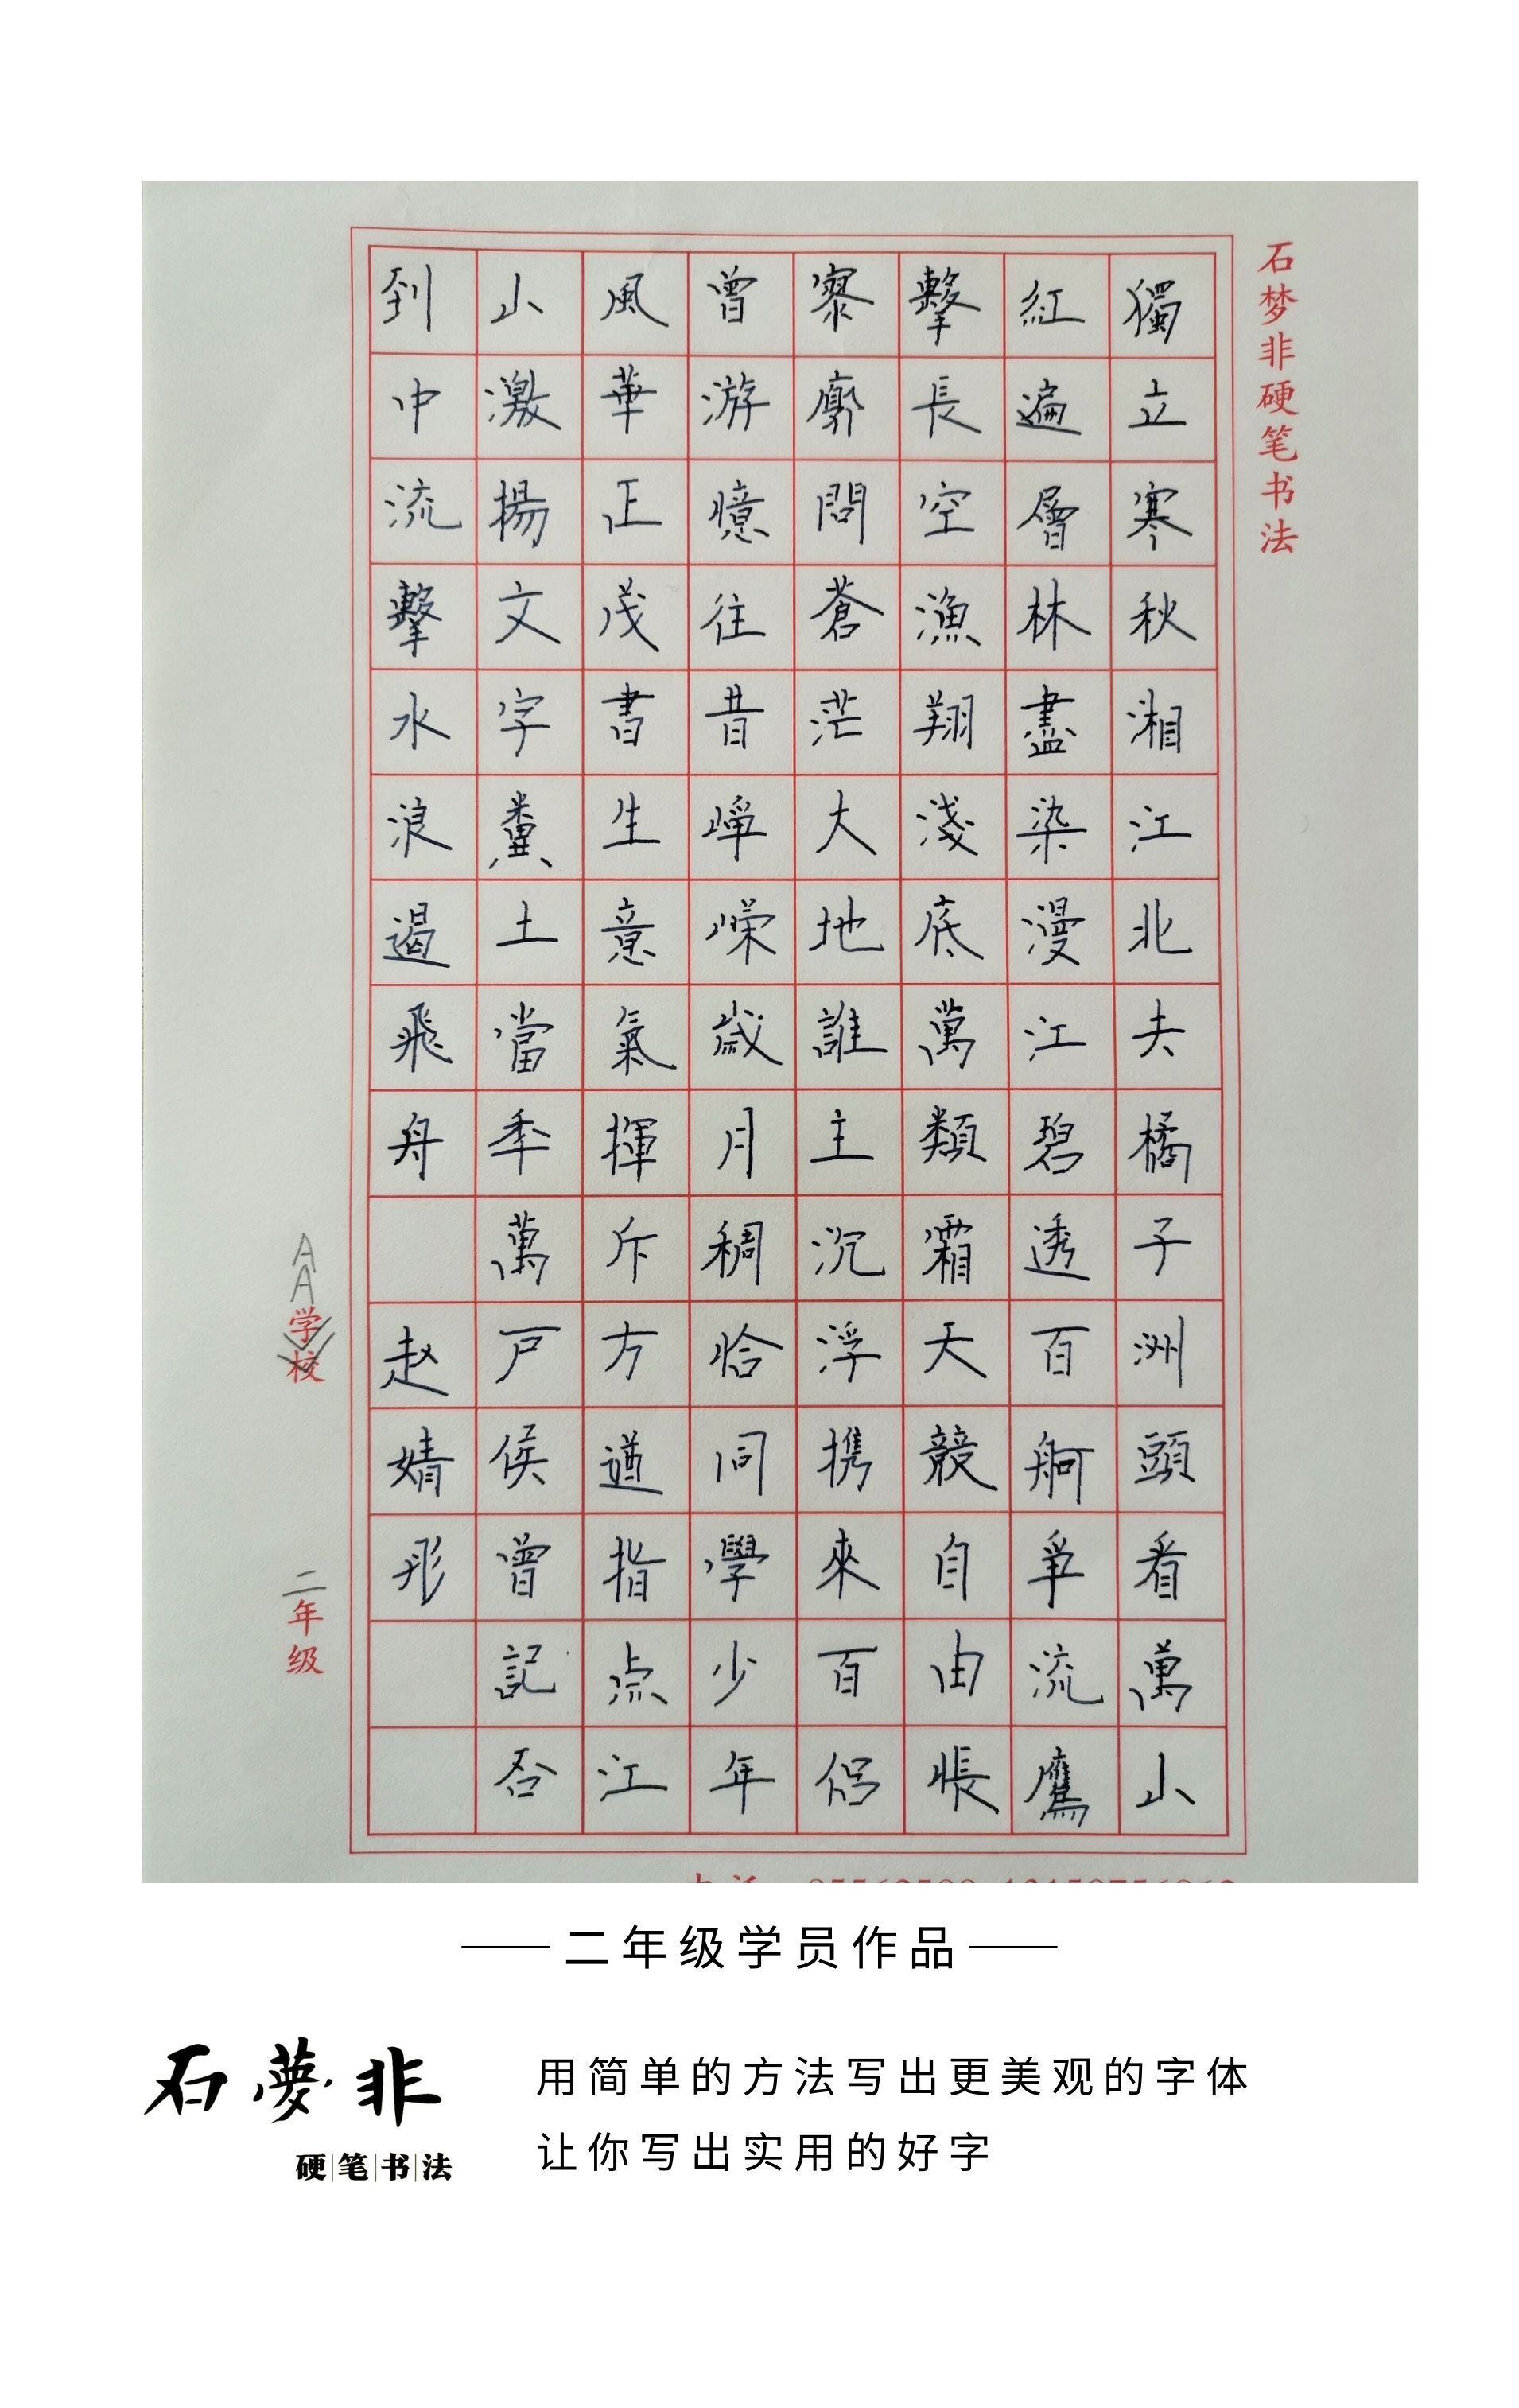 石梦非硬笔书法
獨立寒秋湘江北去橘子洲頭看萬山
紅遍層林盡染漫江碧透百舸爭流鷹
擊長空漁翔淺底萬類霜天競自由悵
寥廓問蒼茫大地誰主沉浮携來百侣
曾游憶往昔崢嶸歲月稠恰同學少年
風華正茂書生意氣揮斥方遒指点江
山激揚文字糞土當年萬户侯曾記否
到中流擊水浪遏飛舟 赵婧彤
AA学校 二年级
二年级学员作品
石夢非
硬笔书法
用简单的方法写出更美观的字体
让你写出实用的好字